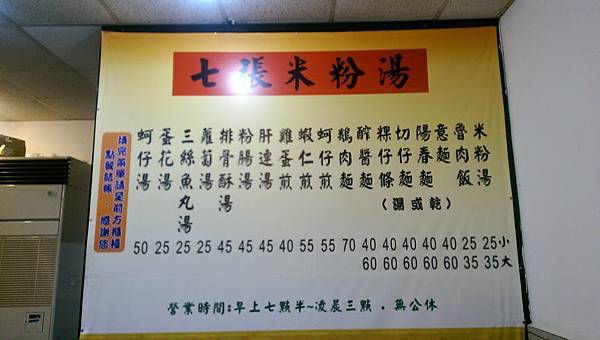 七張米粉湯
米粉湯
魯肉飯
意麵
陽春麵
切仔麵
粿仔條
(湯或乾)
醡醬麵
鵝肉麵
蚵仔煎
蝦仁煎
雞蛋煎
肝連湯
粉腸湯
排骨酥湯
蘿蔔湯
三絲魚丸湯
蛋花湯
蚵仔湯
填完菜單請至前方櫃檯
點餐結帳．感謝您
50 25 25 25 45 45 45 40 55 55 70 40 40 40 40 40 25 25 小
60 60 60 60 60 35 35 大
營業時間:早上七點半~凌晨三點．無公休